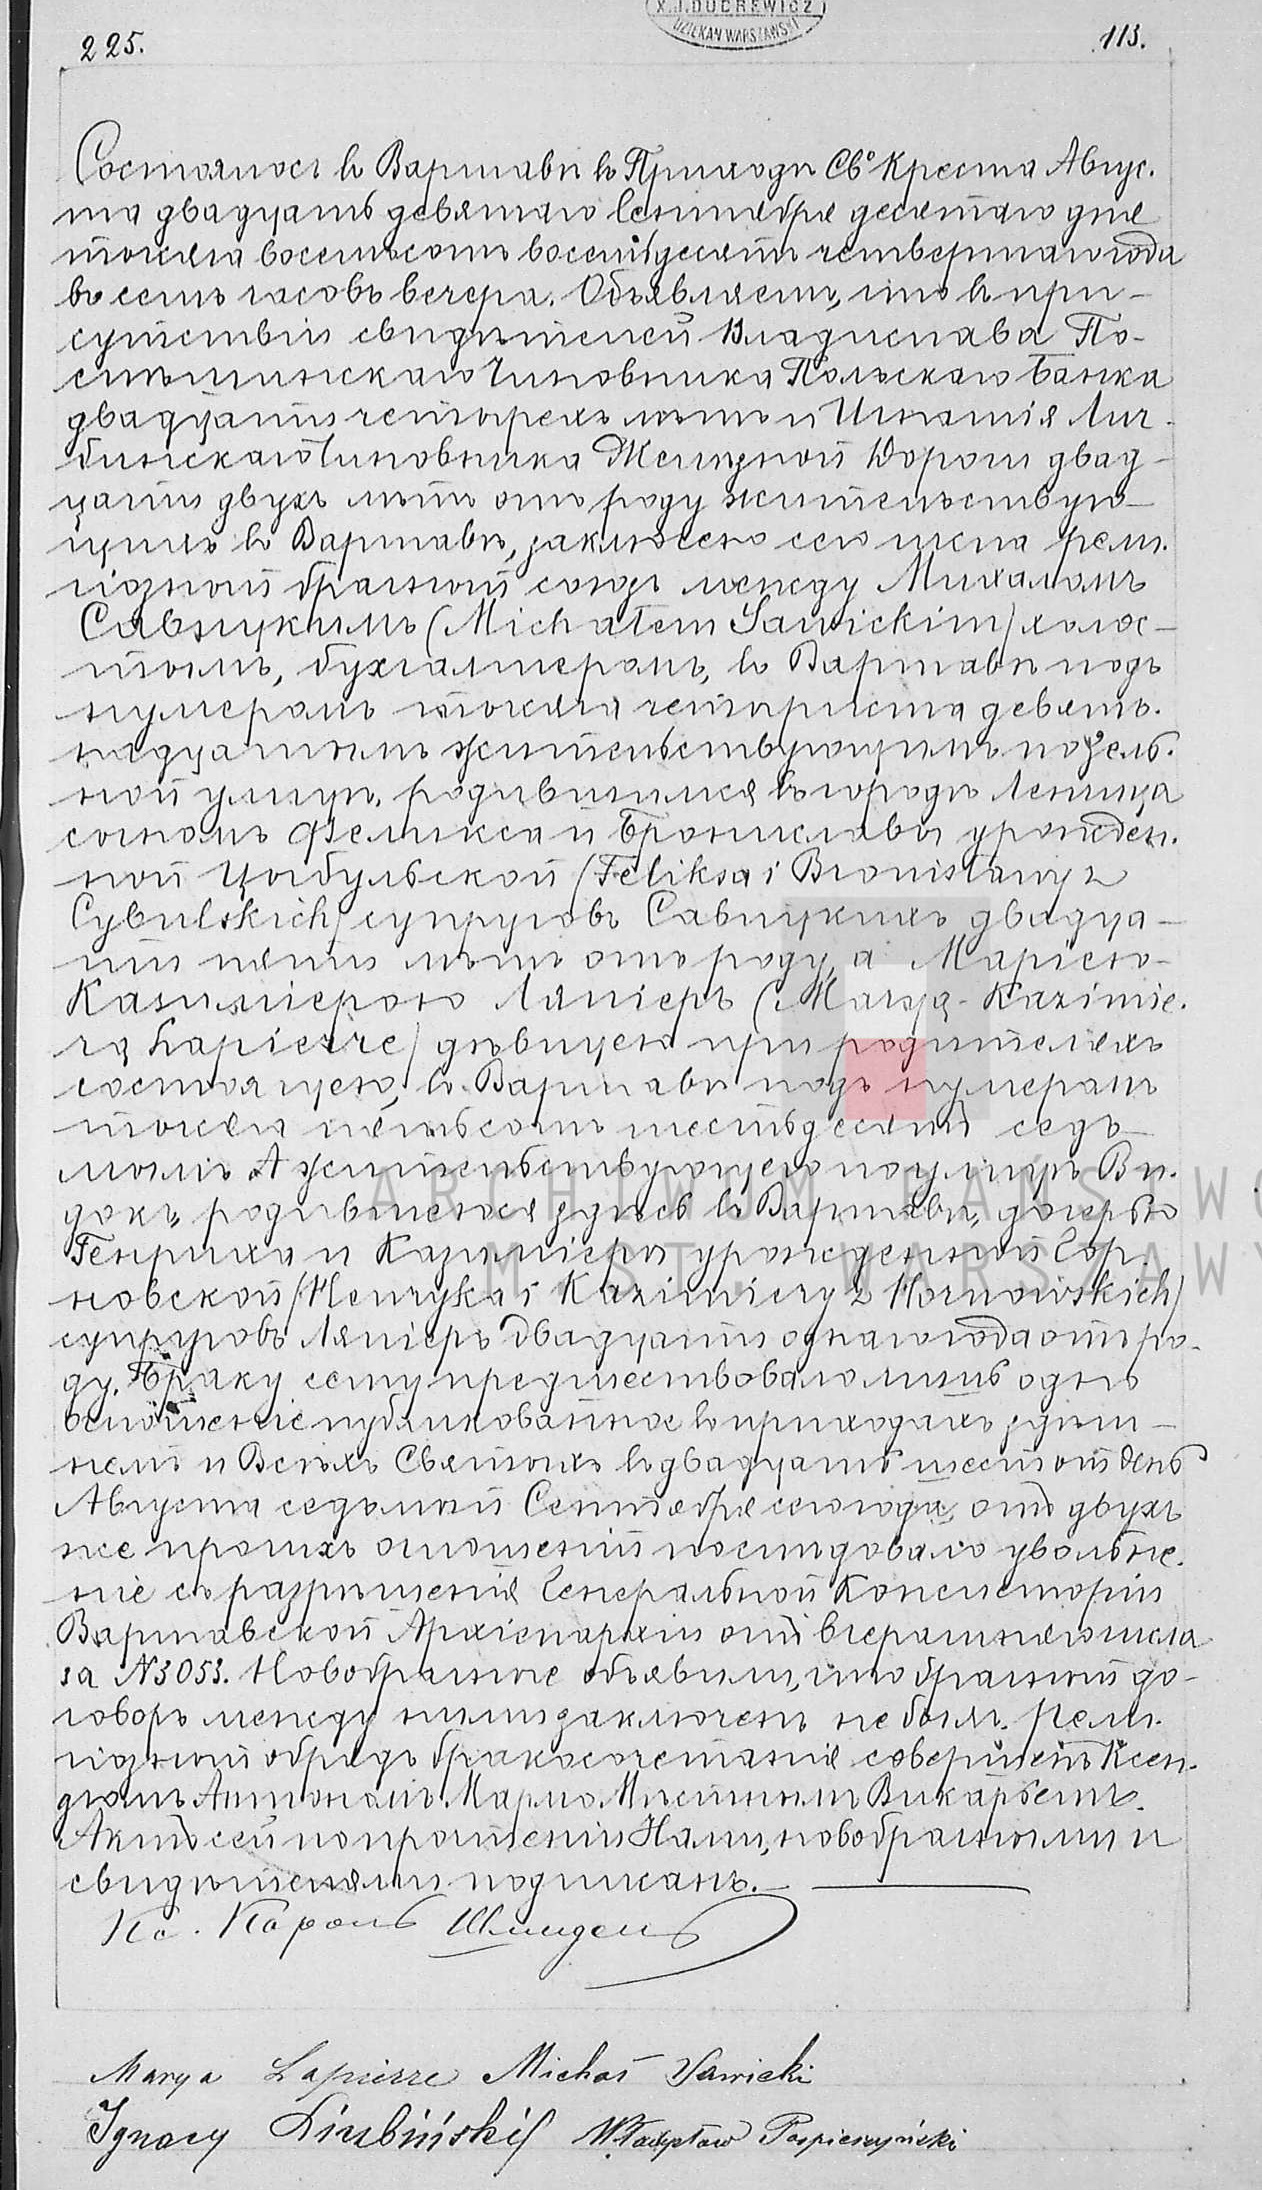 X.J.DUDREWICZ
DZIEKAN WARSZAWSKI
225.
113.
Состоялось въ Варшавѣ въ Приходѣ Св. Креста Авгус-
та двадцать девятаго Сентября десятаго дня
тысяча восемьсотъ восемьдесятъ четвертаго года
въ семь часовъ вечера. Объявляемъ, что въ при-
сутствіи свидѣтелей Владислава По-
спѣшинскаго Чиновника Польскаго Банка
двадцати четырехъ лѣтъ и Игнатія Лю-
бинскаго Чиновника Желѣзной Дороги двад-
цати двухъ лѣтъ отъ роду жительствую-
щихъ въ Варшавѣ, заключено сего числа рели-
гіозный брачный союзъ между Михаломъ
Савицкимъ (Michałem Sawickim) холос-
тымъ, бухгалтеромъ, въ Варшавѣ подъ
нумеромъ тысяча четыриста девят-
надцатымъ жительствующимъ по Зель-
ной улицѣ, родившимся въ городѣ Ленчица
сыномъ Феликса и Брониславы урожден-
ной Цыбульской (Feliksa i Bronisławy z
Cybulskich) супруговъ Савицкихъ двадца-
ти пяти лѣтъ отъ роду, а Маріею-
Казиміерою Ляпіеръ (Maryą-Kazimie-
rą Lapierre) дѣвицею при родителяхъ
состоящею, въ Варшавѣ подъ нумеромъ
тысяча пятьсотъ шестьдесятъ седь-
мымъ А жительствующею по улицѣ Ви-
докъ, родившеюся здѣсь въ Варшавѣ, дочерью
Генриха и Казиміеры урожденной Гор-
новской (Henryka i Kazimiery z Hornowskich)
супруговъ Ляпіеръ двадцати одного года отъ ро-
ду. Браку сему предшествовало лишь одно
оглошеніе публикованное въ приходахъ здѣш-
немъ и Всѣхъ Святыхъ въ двадцать шестый день
Августа седьмый Сентября сего года, отъ двухъ
же прочихъ оглошеній послѣдовало увольне-
ніе съ разрѣшенія Генеральной Консисторіи
Варшавской Архіепархіи отъ вчерашняго числа
за N3053. Новобрачные объявили, что брачный до-
говоръ между ними заключенъ не былъ. Рели-
гіозный обрядъ бракосочетанія совершенъ Ксен-
дзомъ Антономъ Мѣстнымъ Викаріемъ.
Актъ сей по прочтеніи Нами, новобрачными и
свидѣтелями подписанъ.
Кс. Кароль
Marya Lapierre Michał Sawicki
Ignacy Liubiński Władysław Pospieszyński
ARCHIWUM PAŃSTWO
M. ST. WARSZAWY